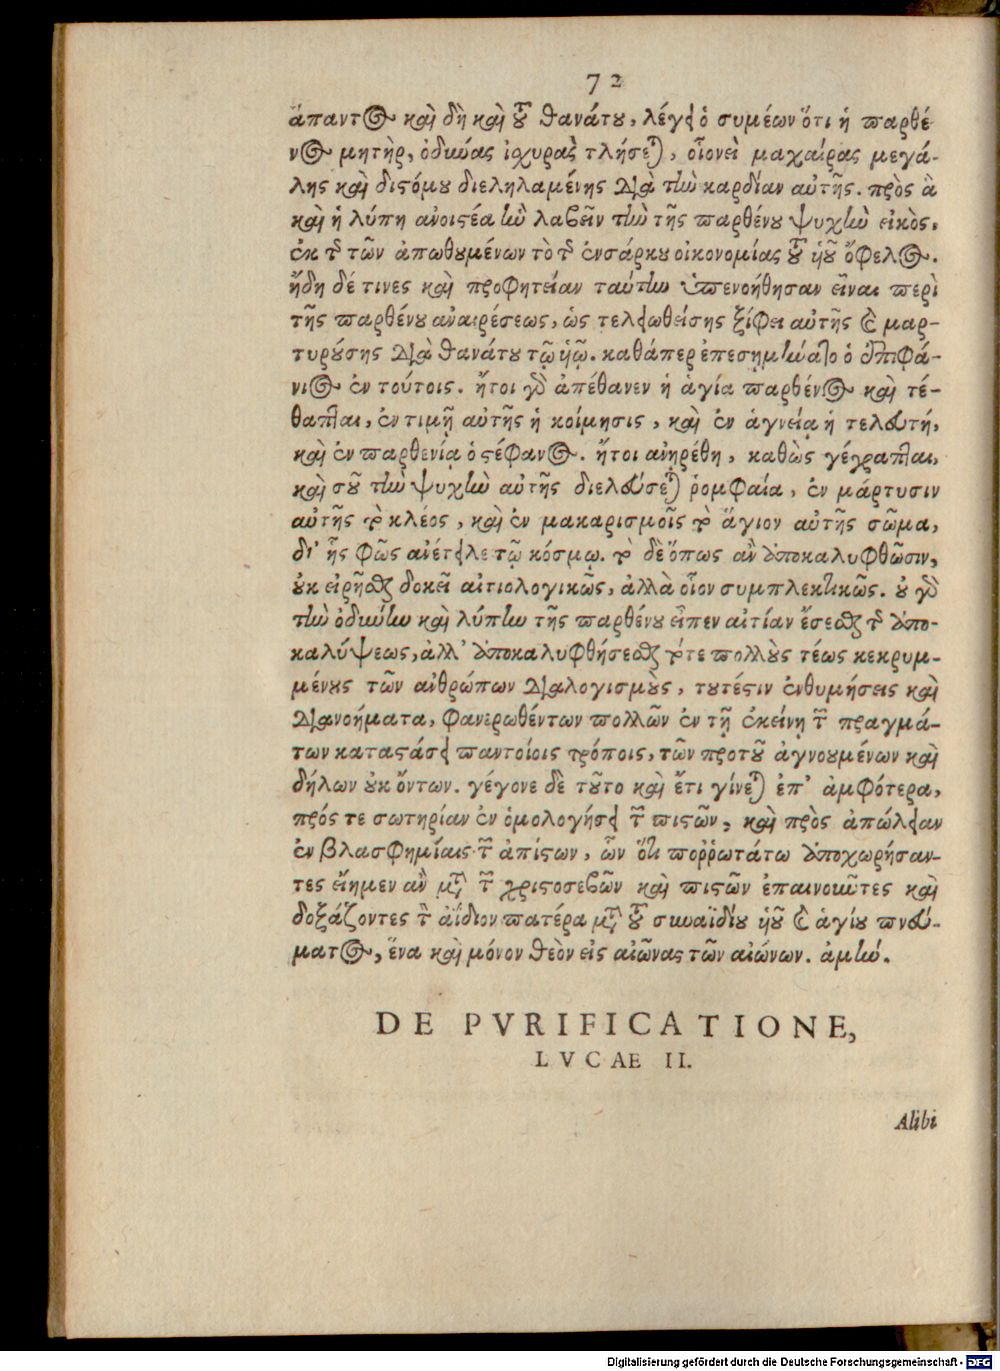 72
ἅπαντος καὶ δὴ καὶ τοῦ θανάτου, λέγει ὁ συμέων ὅτι ἡ παρθέ-
νος μητὴρ, ὀδύνας ἰσχυρὰς τλήσεται, οἱονεὶ μαχαίρας μεγά-
λης καὶ διστόμου διεληλαμένης διὰ τὴν καρδίαν αὐτῆς. πρὸς ἃ
καὶ ἡ λύπη ἀνοιστέα ἣν λαβεῖν τὴν τῆς παρθένου ψυχὴν εἰκὸς,
ἐκ τῆς τῶν ἀπωθουμένων τὸ τῆς ἐνσάρκου οἰκονομίας τοῦ υἱοῦ ὄφελος.
ἤδη δέ τινες καὶ προφητείαν ταύτην ὑπενοήθησαν εἶναι περὶ
τῆς παρθένου ἀναιρέσεως, ὡς τελειωθείσης ξίφει αὐτῆς καὶ μαρ-
τυρούσης διὰ θανάτου τῷ υἱῷ. καθάπερ ἐπεσημήνατο ὁ ἐπιφά-
νιος ἐν τούτοις. ἤτοι γὰρ ἀπέθανεν ἡ ἁγία παρθένος καὶ τέ-
θαπται, ἐν τιμῇ αὐτῆς ἡ κοίμησις, καὶ ἐν ἁγνείᾳ ἡ τελευτή,
καὶ ἐν παρθενίᾳ ὁ στέφανος. ἤτοι ἀνῃρέθη, καθὼς γέγραπται,
καὶ σοῦ τὴν ψυχὴν αὐτῆς διελεύσεται ῥομφαία, ἐν μάρτυσιν
αὐτῆς τὸ κλέος, καὶ ἐν μακαρισμοῖς τὸ ἅγιον αὐτῆς σῶμα,
δι' ἧς φῶς ἀνέτειλε τῷ κόσμῳ. τὸ δὲ ὅπως ἂν ἀποκαλυφθῶσιν,
οὐκ εἰρῆσθαι δοκεῖ αἰτιολογικῶς, ἀλλὰ οἷον συμπλεκτικῶς. οὐ γὰρ
τὴν ὀδύνην καὶ λύπην τῆς παρθένου εἶπεν αἰτίαν ἔσεσθαι τῆς ἀπο-
καλύψεως, ἀλλ' ἀποκαλυφθήσεσθαι τότε πολλοὺς τέως κεκρυμ-
μένους τῶν ἀνθρώπων διαλογισμοὺς, τουτέστιν ἐνθυμήσεις καὶ
διανοήματα, φανερωθέντων πολλῶν ἐν τῇ ἐκείνῃ τῶν πραγμά-
των καταστάσει παντοίοις τρόποις, τῶν προτοῦ ἀγνουμένων καὶ
δήλων οὐκ ὄντων. γέγονε δὲ τοῦτο καὶ ἔτι γίνεται ἐπ' ἀμφότερα,
πρός τε σωτηρίαν ἐν ὁμολογήσει τῶν πιστῶν, καὶ πρὸς ἀπώλειαν
ἐν βλασφημίαις τῶν ἀπίστων, ὧν ὅτι πορῥωτάτω ἀποχωρήσαν-
τες εἴημεν ἂν μετὰ τῶν χριστοσεβῶν καὶ πιστῶν ἐπαινοῦντες καὶ
δοξάζοντες τὸν ἀΐδιον πατέρα μετὰ τοῦ συναϊδίου υἱοῦ καὶ ἁγίου πνεύ-
ματος, ἕνα καὶ μόνον θεὸν εἰς αἰῶνας τῶν αἰώνων. ἀμήν.
DE PVRIFICATIONE,
LVCAE II.
Alibi
Digitalisierung gefördert durch die Deutsche Forschungsgemeinschaft - DFG